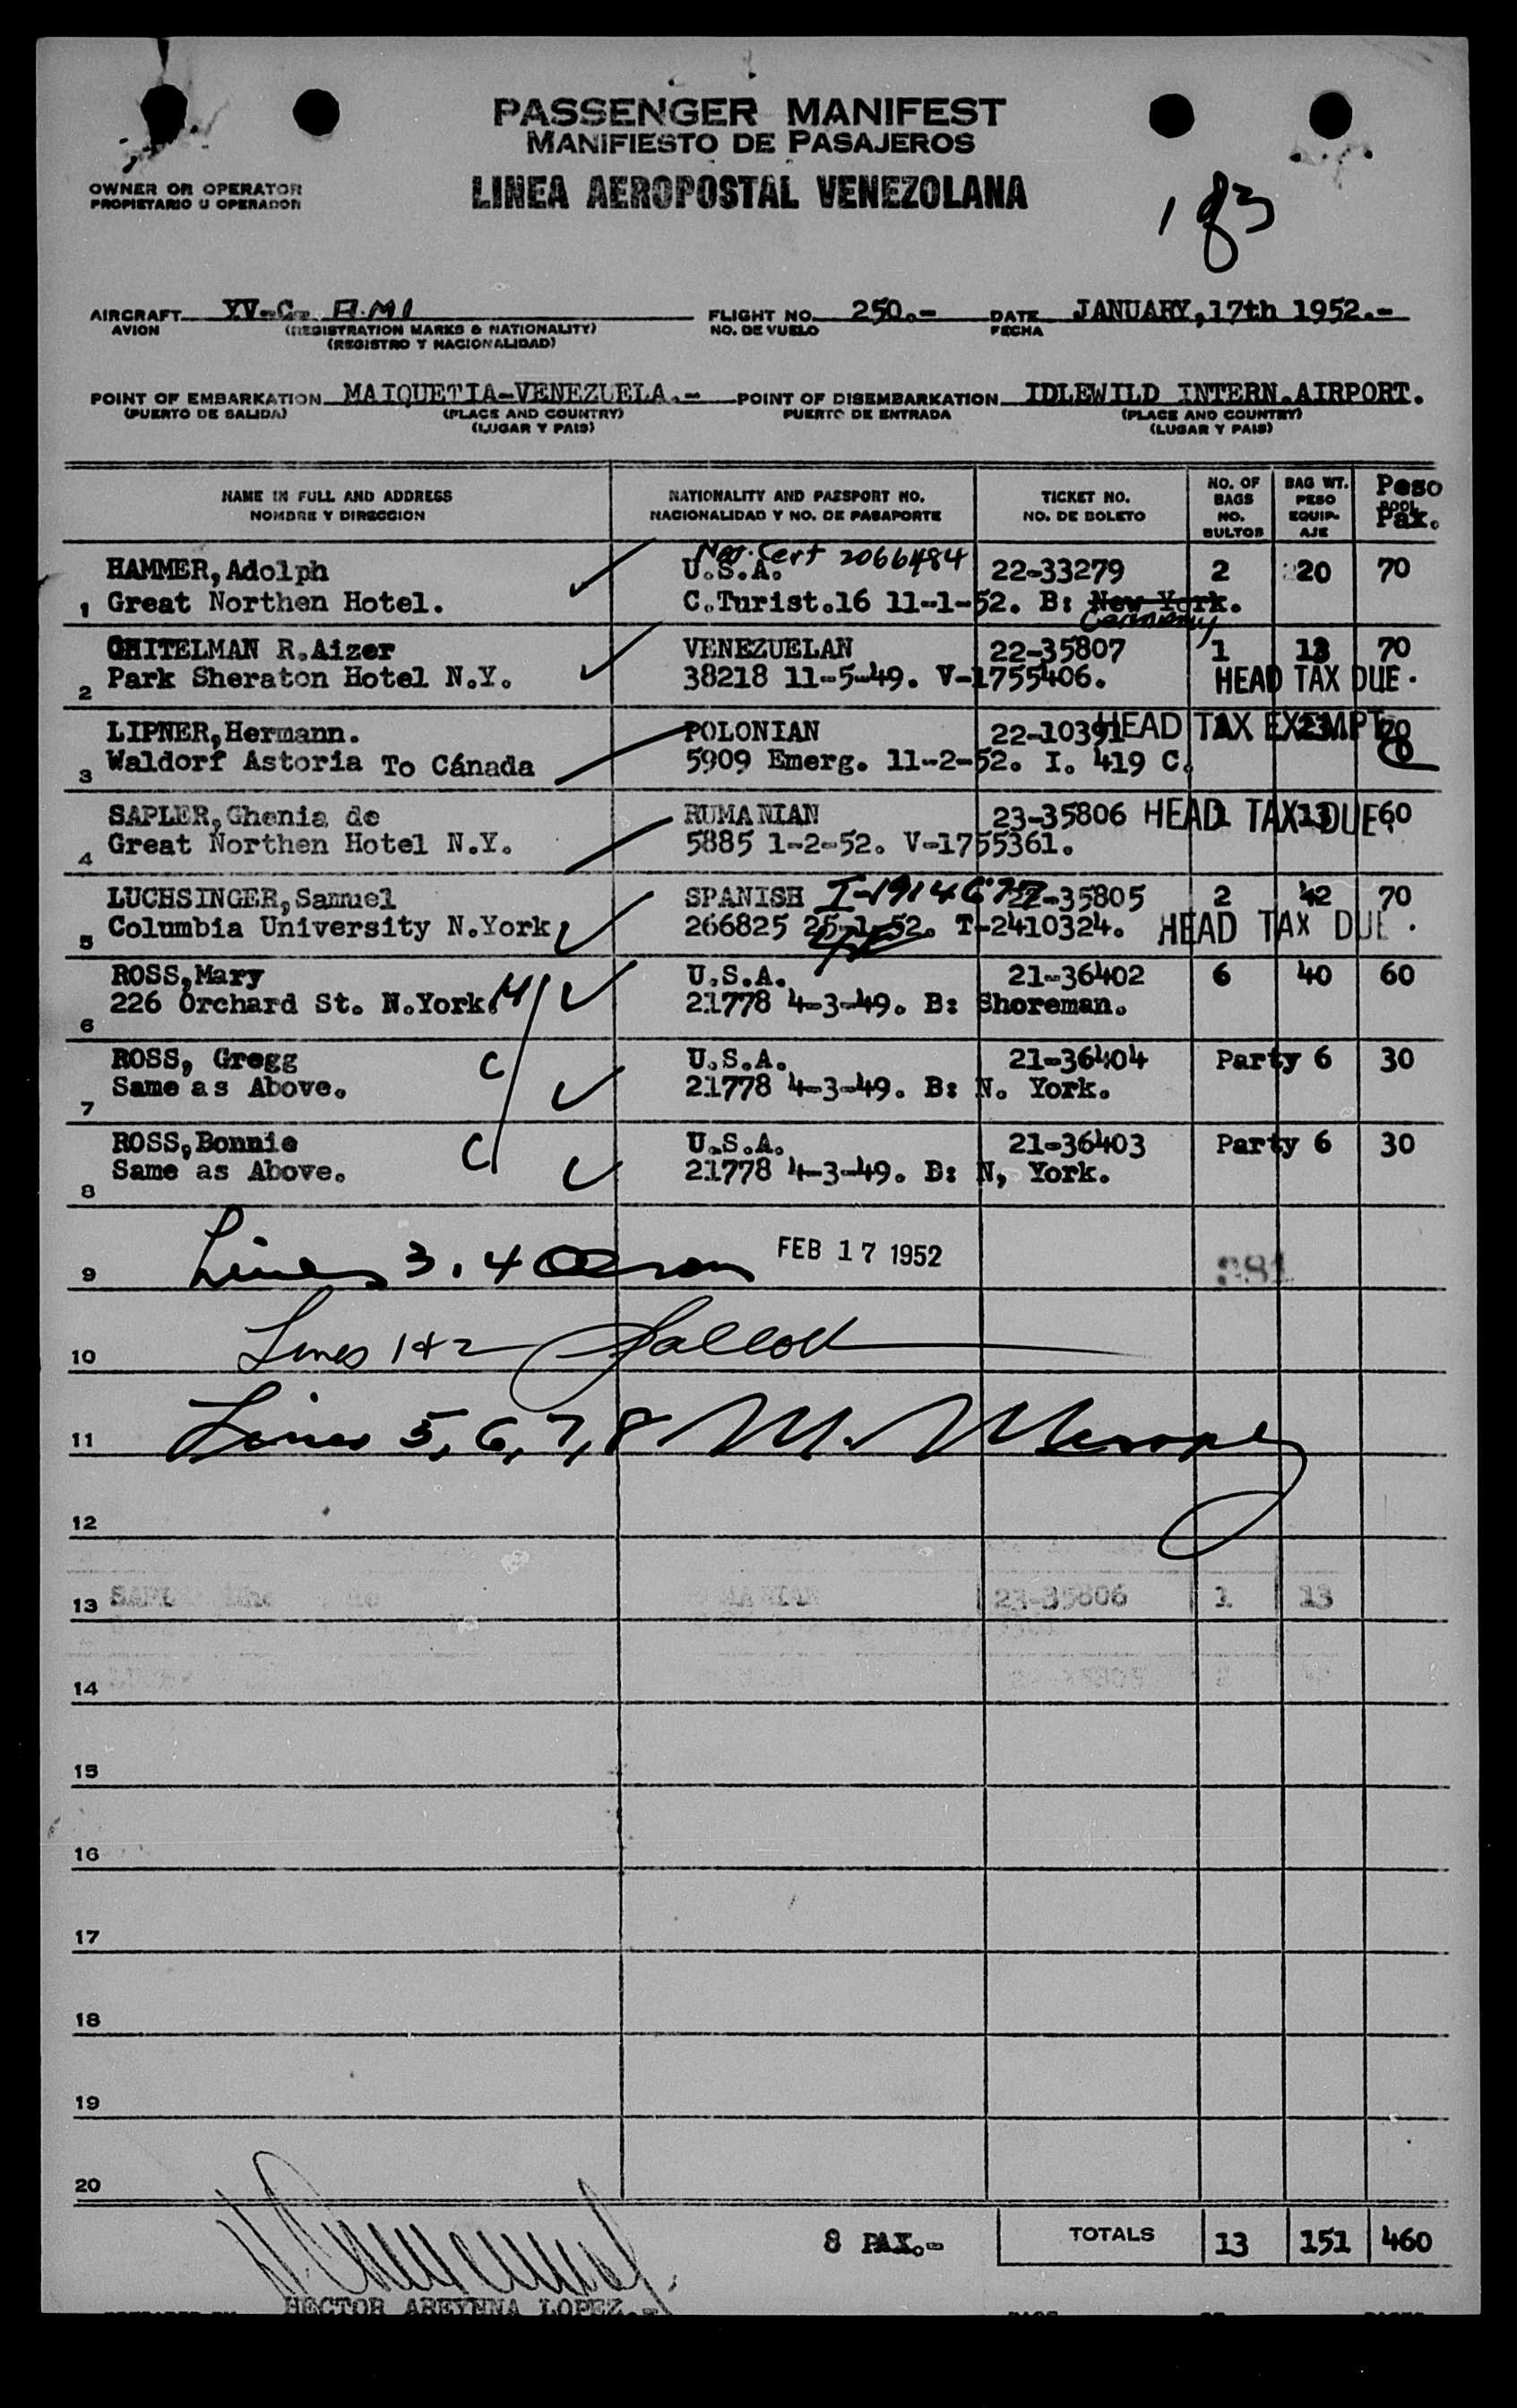 PASSENGER MANIFEST
MANIFIESTO DE PASAJEROS
OWNER OR OPERATOR
PROPIETARIO U OPERADOR
LINEA AEROPOSTAL VENEZOLANA
AIRCRAFT YV-C- AMI FLIGHT NO. 250.- DATE JANUARY,17th 1952.-
AVION (REGISTRATION MARKS & NATIONALITY) NO. DE VUELO FECHA
(REGISTRO Y NACIONALIDAD)
POINT OF EMBARKATION MAIQUETIA-VENEZUELA.- POINT OF DISEMBARKATION IDLEWILD INTERN.AIRPORT.
(PUERTO DE SALIDA) (PLACE AND COUNTRY) PUERTO DE ENTRADA (PLACE AND COUNTRY)
(LUGAR Y PAIS) (LUGAR Y PAIS)
NAME IN FULL AND ADDRESS NATIONALITY AND PASSPORT NO. TICKET NO. NO. OF BAGS BAG WT. Peso
NOMBRE Y DIRECCION NACIONALIDAD Y NO. DE PASAPORTE NO. DE BOLETO NO. BULTOS PESO EQUIP-AJE Pax.
Nat. Cert 2066484
HAMMER,Adolph U.S.A. 22-33279 2 20 70
1 Great Northen Hotel. C.Turist.16 11-1-52. B: New York.
Germany
GHITELMAN R.Aizer VENEZUELAN 22-35807 1 13 70
2 Park Sheraton Hotel N.Y. 38218 11-5-49. V-1755406. HEAD TAX DUE.
LIPNER,Hermann. POLONIAN 22-10391 HEAD TAX EXEMPT
3 Waldorf Astoria To Cánada 5909 Emerg. 11-2-52. I. 419 C.
SAPLER,Ghenia de RUMANIAN 23-35806 HEAD TAX DUE. 1 13 60
4 Great Northen Hotel N.Y. 5885 1-2-52. V-1755361.
LUCHSINGER,Samuel SPANISH 22-35805 2 42 70
5 Columbia University N.York 266825 25-1-52. T-2410324. HEAD TAX DUE.
ROSS,Mary U.S.A. 21-36402 6 40 60
6 226 Orchard St. N.York. M 21778 4-3-49. B: Shoreman.
ROSS, Gregg C U.S.A. 21-36404 Party 6 30
7 Same as Above. 21778 4-3-49. B: N. York.
ROSS,Bonnie C U.S.A. 21-36403 Party 6 30
8 Same as Above. 21778 4-3-49. B: N, York.
9 Lines 3,4 FEB 17 1952
10 Lines 1 & 2
11 Lines 5, 6, 7, 8 M.
12
13 23-35806 1 13
14
15
16
17
18
19
20
8 PAX.- TOTALS 13 151 460
HECTOR AREYNNA LOPEZ.-